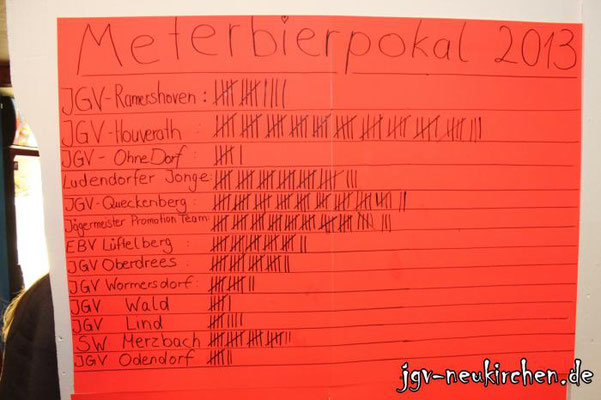 Meterbierpokal 2013
JGV-Ramershoven :
JGV-Houverath :
JGV-OhneDorf :
Ludendorfer Jonge:
JGV-Queckenberg :
Jägermeister Promotion Team:
EBV Lüftelberg :
JGV Oberdrees :
JGV Wormersdorf :
JGV Wald :
JGV Lind :
SW Merzbach :
JGV Odendorf :
jgv-neukirchen.de